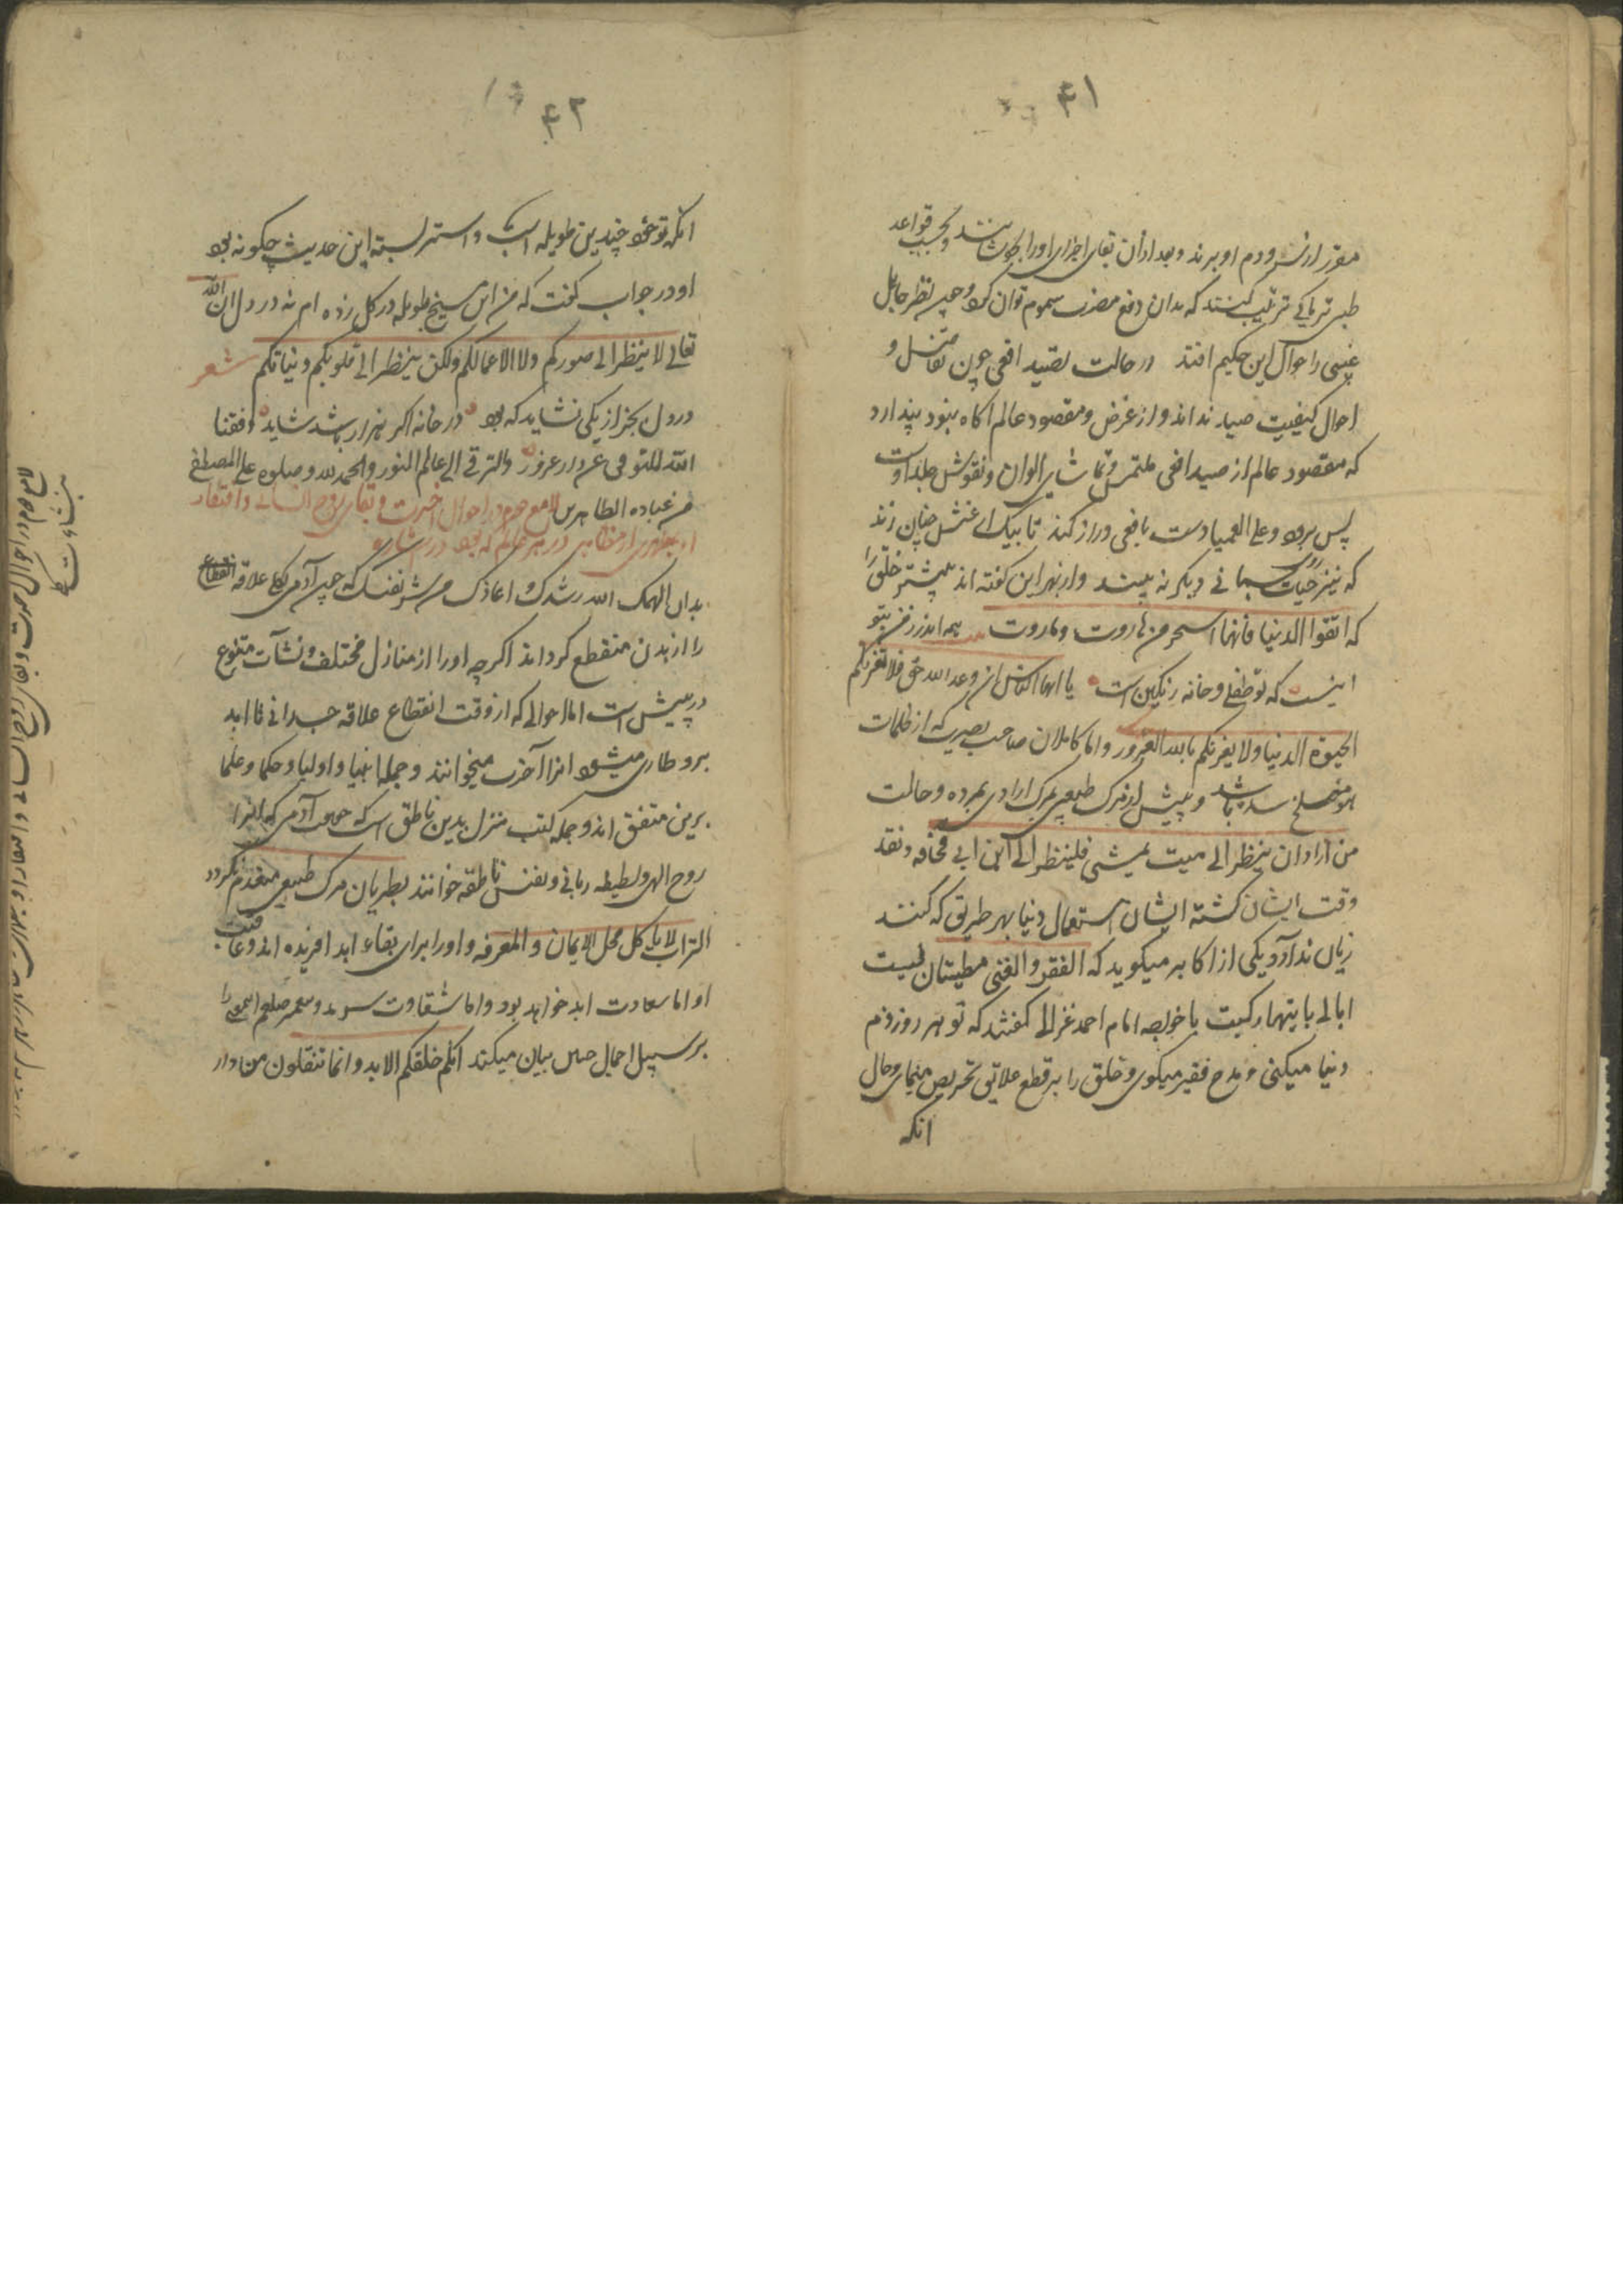 ۴۱
مقرر از سر و دم او ببرند و بعد از آن بقای اجزای او را بجوشانند و بحسب قواعد
طبی تریاکی ترتیب کنند که بدان دفع مضرت سموم توان کرد و چون نظر جاهل
غبی را حوال این حکیم افتد در حالت تصید افعی چون تفاصیل و
احوال کیفیت صید نداند و از غرض و مقصود عالم آگاه نبود پندارد
که مقصود عالم از صید افعی ملتمس و تماشای الوان و نقوش جلد اوست
پس برود و علی العمیا دست بافعی دراز کند تا بیک
که نیز حیات جسمانی دیگر نه بیند و از بهر این گفته اند بیشتر خلق را
که اتقوا الدنیا فانها اسحر من هاروت و ماروت همه اندرز من بتو
اینست که تو طفلی و خانه رنگین است یا ایها الناس ان وعد الله حق فلا تغرنکم
الحیوة الدنیا ولا یغرنکم بالله الغرور و اما کاملان صاحب بصیرت که از ظلمات
شده باشد و پیش از مرگ طبیعی بمرگ ارادی بمرده و حالت
من اراد ان ینظر الی میت یمشی فلینظر الی ابن ابی قحافه و نقد
وقت ایشان گشته ایشان استعمال دنیا بهر طریق که کنند
زیان ندارد یکی از اکابر میگوید که الفقر و الغنی مطیتان لیست
ابالی بایتهما رکبت با خواجه امام احمد غزالی گفتند که تو هر روز ذم
دنیا میکنی و مدح فقیر میگوی و خلق را بر قطع علایق تحریص مینمای و حال
انکه
۴۲
انکه تو خود چندین طویله اسب و استر بسته این حدیث چگونه بود
او در جواب گفت که من این میخ طویله در گل زده ام نه در دل ان الله
تعالی لا ینظر الی صورکم ولا الی اعمالکم ولکن ینظر الی قلوبکم و نیاتکم شعر
در دل بجز از یکی نشاید که بود در خانه اگر هزار باشد شاید وفقنا
الله للتوقی عن دار غرور والترقی الی عالم النور والحمد لله وصلوه علی المصطفی
من عباده الطاهرین لامع در احوال آخرت و بقای روح انسانی و افتقار
او بمظهری از مظاهر در هر عالم که بود در نشاره
بدان الهمک الله رشدک و اعاذک من شر نفسک که چون آدمی علاقه انقطاع
را از بدن منقطع گرداند اگرچه او را از منازل مختلف و نشآت متنوع
در پیش است اما احوالی که از وقت انقطاع علاقه جسدانی تا ابد
برو طاری میشود انرا آخرت میخوانند و جمله انبیا و اولیا و حکما و علما
برین متفق اند و جمله کتب منزل بدین ناطق است که آدمی که انرا
روح الهی و لطیفه ربانی و نفس ناطقه خوانند بطریان مرگ طبیعی منعدم نگردد
التراب لا یاکل محل الایمان و المعرفه و او را برای بقاء ابد افریده اند و عاقبت
او اما سعادت ابد خواهد بود و اما شقاوت سرمد و پیغمبر صلعم این معنی را
بر سبیل اجمال چنین بیان میکند انکم خلقکم الابد و انما تنقلون من دار